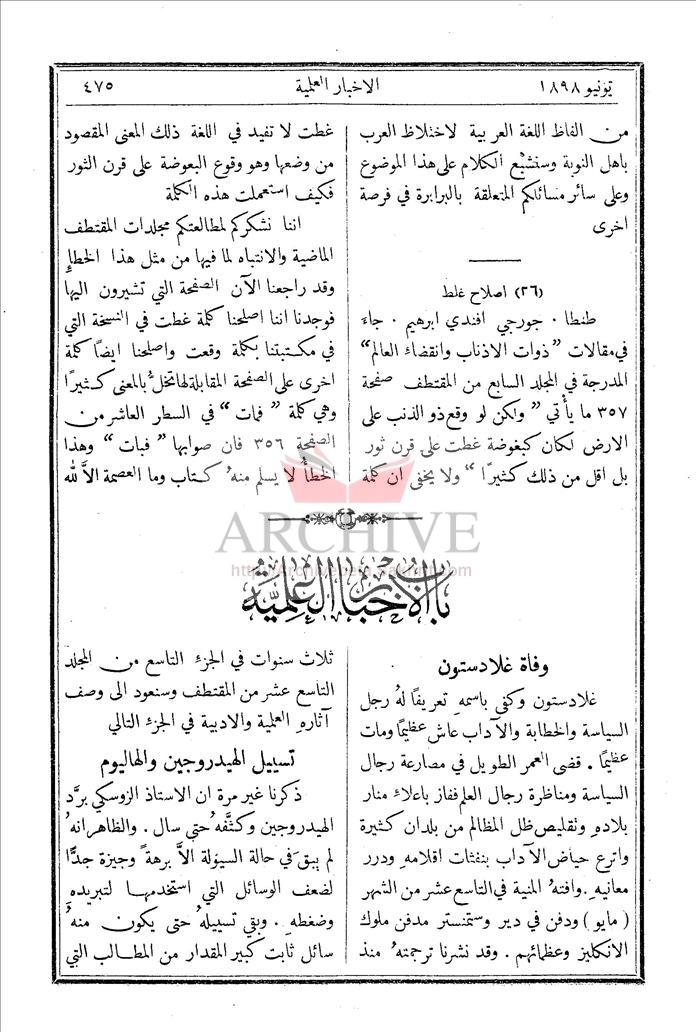 يونيو ١٨٩٨
الاخبار العلمية
٤٧٥
من الفاظ اللغة العربية لاختلاط العرب
باهل النوبة وسنشبع الكلام على هذا الموضوع
وعلى سائر مسائلكم المتعلقة بالبرابرة في فرصة
اخرى
(٢٦) اصلاح غلط
طنطا . جورجي افندي ابرهيم . جاءَ
في مقالات "ذوات الاذناب وانقضاء العالم"
المدرجة في المجلد السابع من المقتطف صفحة
٣٥٧ ما يأتي " ولكن لو وقع ذو الذنب على
الارض لكان كبغوضة غطت على قرن ثور
بل اقل من ذلك كثيرًا " ولا يخفى ان كلمة
غطت لا تفيد في اللغة ذلك المعنى المقصود
من وضعها وهو وقوع البعوضة على قرن الثور
فكيف استعملت هذه الكلمة
اننا نشكركم لمطالعتكم مجلدات المقتطف
الماضية والانتباه لما فيها من مثل هذا الخطإِ
وقد راجعنا الآن الصفحة التي تشيرون اليها
فوجدنا اننا اصلحنا كلمة غطت في النسخة التي
في مكتبتنا بكلمة وقعت واصلحنا ايضًا كلمة
اخرى على الصفحة المقابلة لها تخلُّ بالمعنى كثيرًا
وهي كلمة " فمات " في السطر العاشر من
الصفحة ٣٥٦ فان صوابها " فبات " وهذا
الخطأُ لا يسلم منهُ كتاب وما العصمة الاَّ لله
ARCHIVE
باب الاخبار العلمية
وفاة غلادستون
غلادستون وكفى باسمهِ تعريفًا لهُ رجل
السياسة والخطابة والآداب عاش عظيمًا ومات
عظيمًا . قضى العمر الطويل في مصارعة رجال
السياسة ومناظرة رجال العلم ففاز باعلاءِ منار
بلادهِ وتقليص ظل المظالم من بلدان كثيرة
واترع حياض الآداب بنفثات اقلامهِ ودرر
معانيهِ . وافتهُ المنية في التاسع عشر من الشهر
( مايو ) ودفن في دير وستمنستر مدفن ملوك
الانكليز وعظمائهم . وقد نشرنا ترجمتهُ منذ
ثلاث سنوات في الجزءِ التاسع من المجلد
التاسع عشر من المقتطف وسنعود الى وصف
آثارهِ العلمية والادبية في الجزءِ التالي
تسييل الهيدروجين والهاليوم
ذكرنا غير مرة ان الاستاذ الزوسكي برَّد
الهيدروجين وكثَّفهُ حتى سال . والظاهر انهُ
لم يبقَ في حالة السيولة الاَّ برهةً وجيزة جدًّا
لضعف الوسائل التي استخدمها لتبريدهِ
وضغطهِ . وبقي تسييلهُ حتى يكون منهُ
سائل ثابت كبير المقدار من المطالب التي